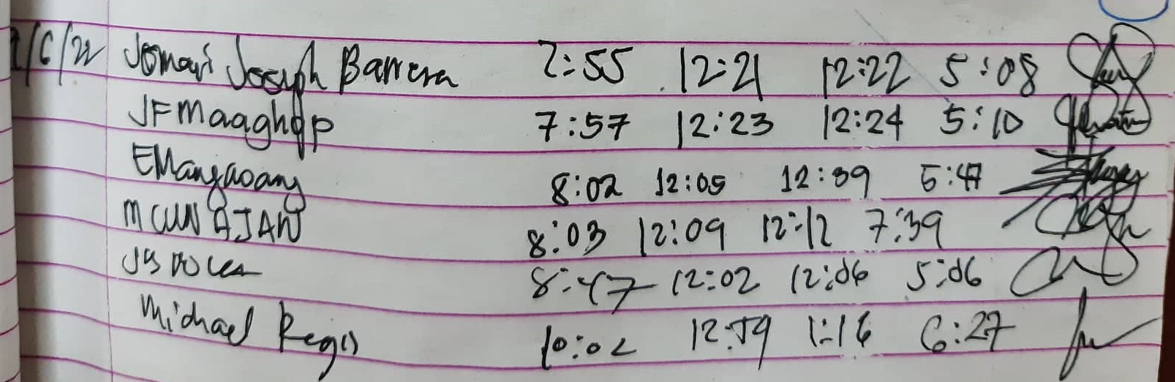 /6/22 Jomari Joseph Barrera 7:55 12:21 12:22 5:08
JFMaaghop 7:57 12:23 12:24 5:10
EMangaoang 8:02 12:05 12:39 5:47
8:03 12:09 12:12 7:39
8:47 12:02 12:06 5:06
Michael Regis 10:02 12:59 1:16 6:27